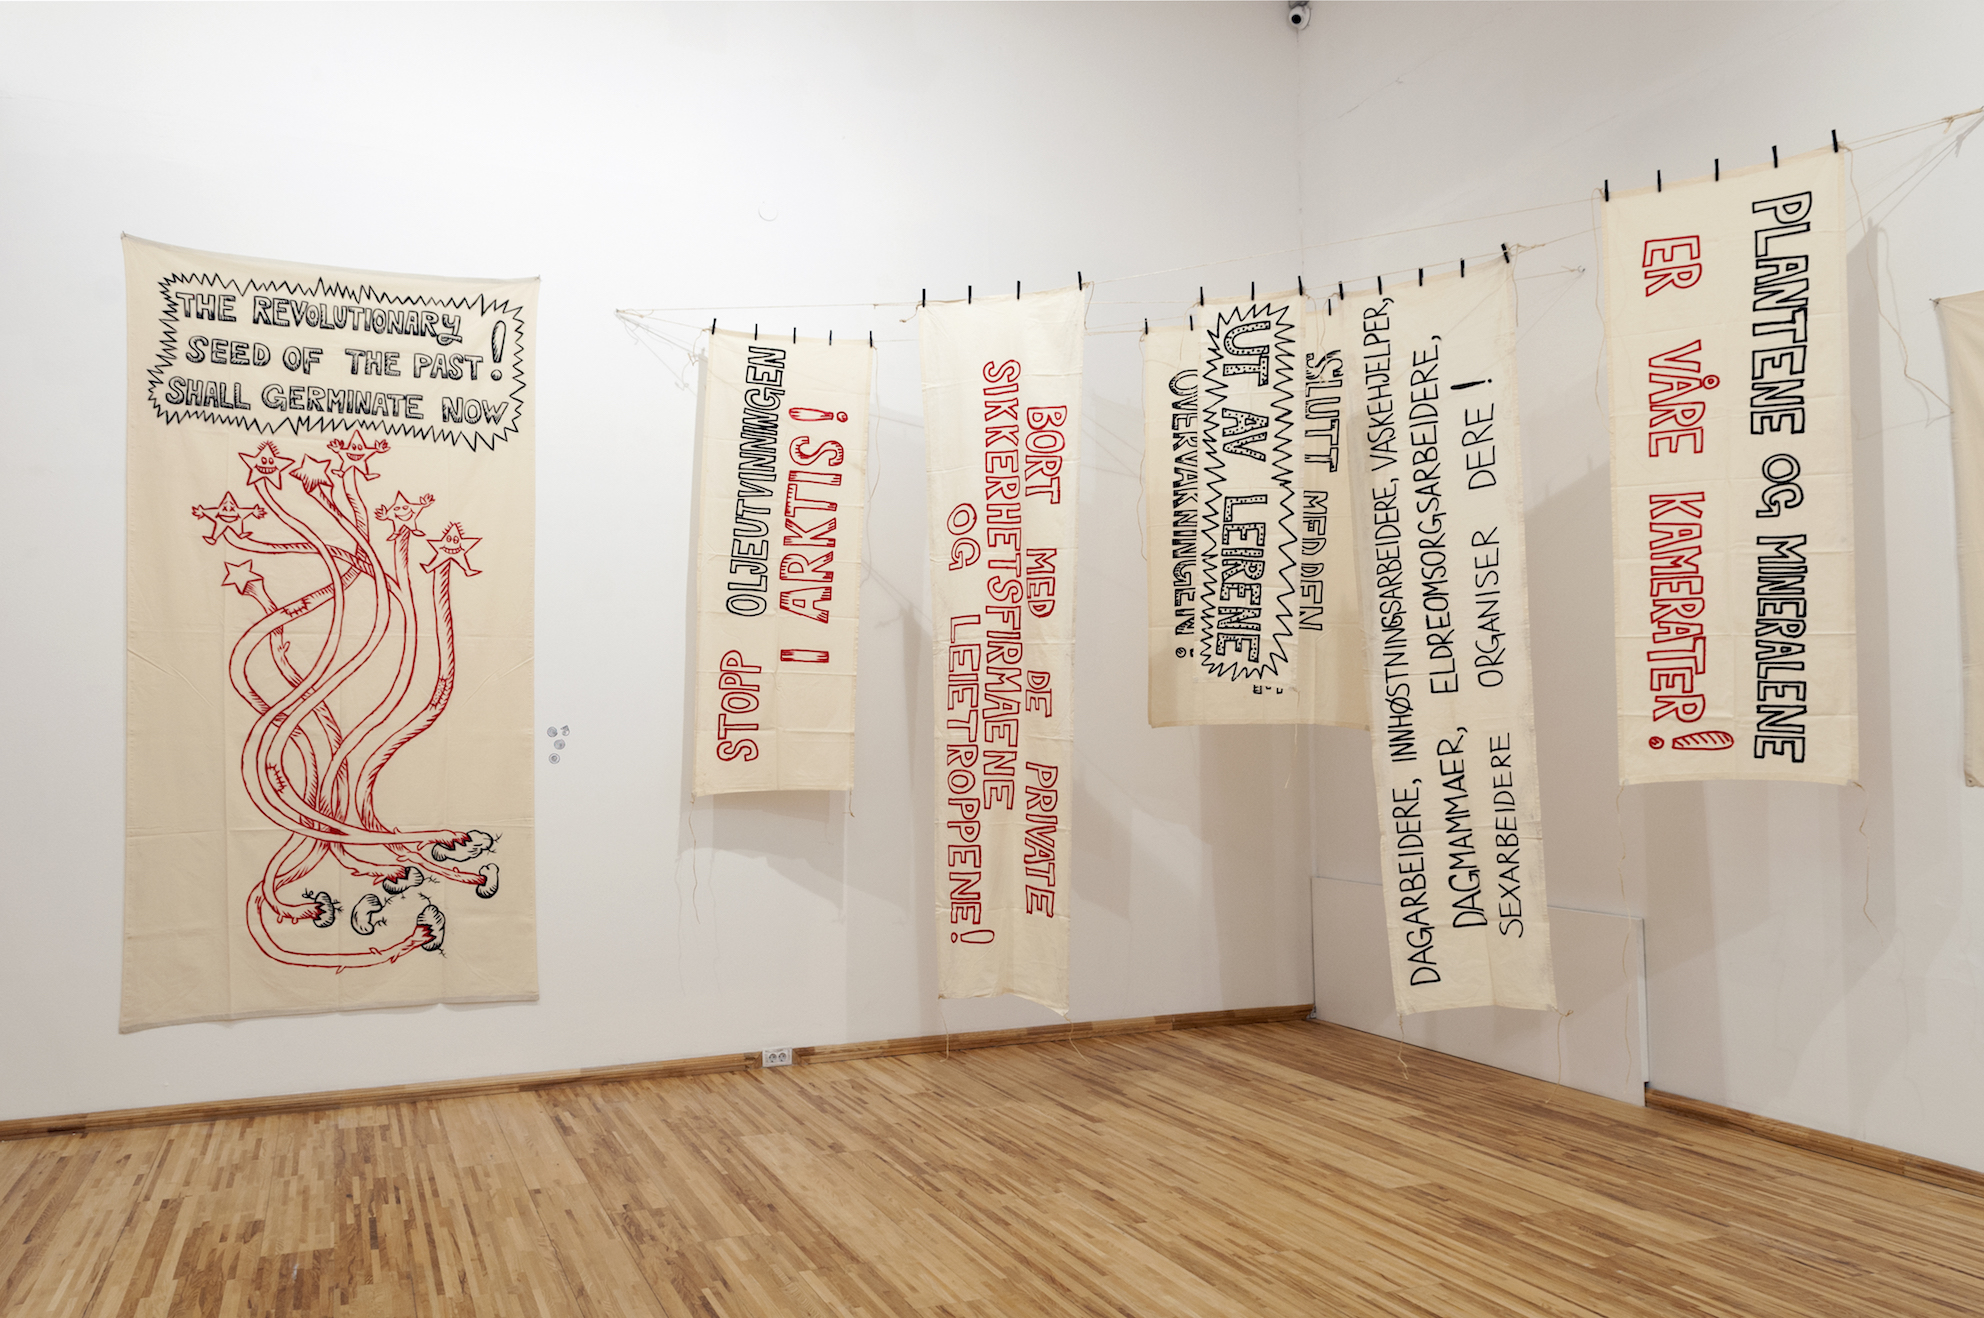 THE REVOLUTIONARY
SEED OF THE PAST!
SHALL GERMINATE NOW
STOPP OLJEUTVINNINGEN
I ARKTIS!
BORT MED DE PRIVATE
SIKKERHETSFIRMAENE
OG LEIETROPPENE!
SLUTT MED DEN
UT AV LEIRENE
DAGARBEIDERE, INNHØSTNINGSARBEIDERE, VASKEHJELPER,
DAGMAMMAER, ELDREOMSORGSARBEIDERE,
SEXARBEIDERE ORGANISER DERE!
PLANTENE OG MINERALENE
ER VÅRE KAMERATER!